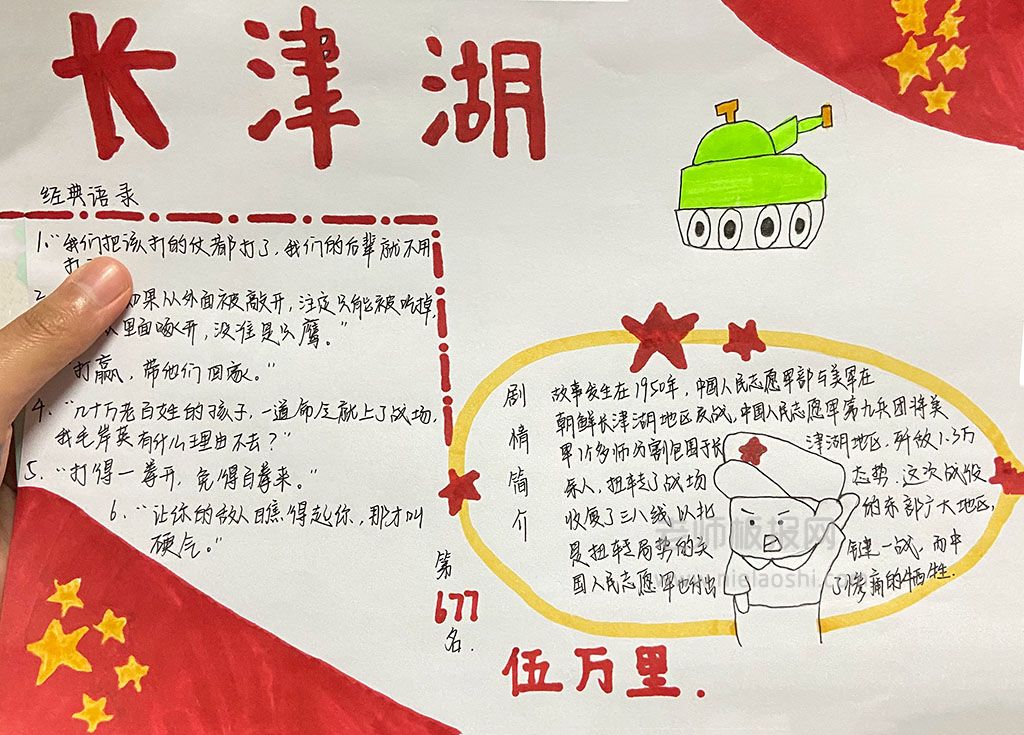 长津湖
经典语录
1. “我们把该打的仗都打了，我们的后辈就不用
打
如果从外面被敲开，注定只能被吃掉，
里面啄开，没准是只鹰。”
打赢，带他们回家。”
4. “几十万老百姓的孩子，一道命令就上了战场，
我毛岸英有什么理由不去？”
5. “打得一拳开，免得百拳来。”
6. “让你的敌人瞧得起你，那才叫
硬气。”
第
677
名.
剧情简介
故事发生在1950年，中国人民志愿军部与美军在
朝鲜长津湖地区交战，中国人民志愿军第九兵团将美
军1个多师分割包围于长津湖地区，歼敌1.3万
余人，扭转了战场态势，这次战役
收复了三八线以北的东部广大地区，
是扭转局势的关键一战，而中
国人民志愿军也付出了惨痛的牺牲.
伍万里.
老师板报网
www.nielaoshi.com